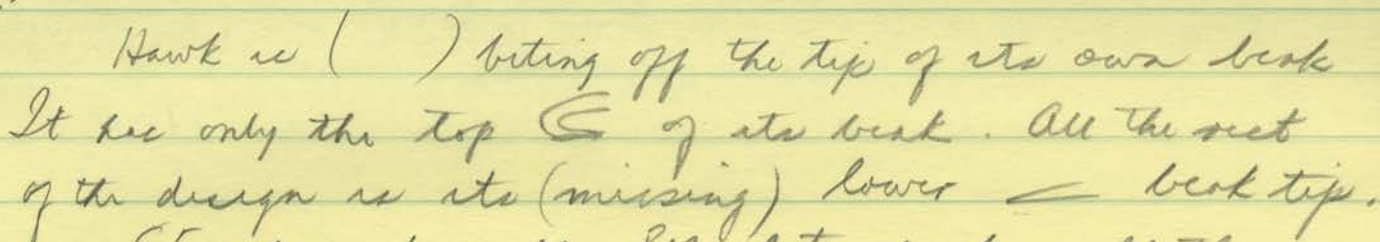 Hawk is ( ) biting off the tip of its own beak
It has only the top of its beak. All the rest
of the design is its (missing) lower beak tip.